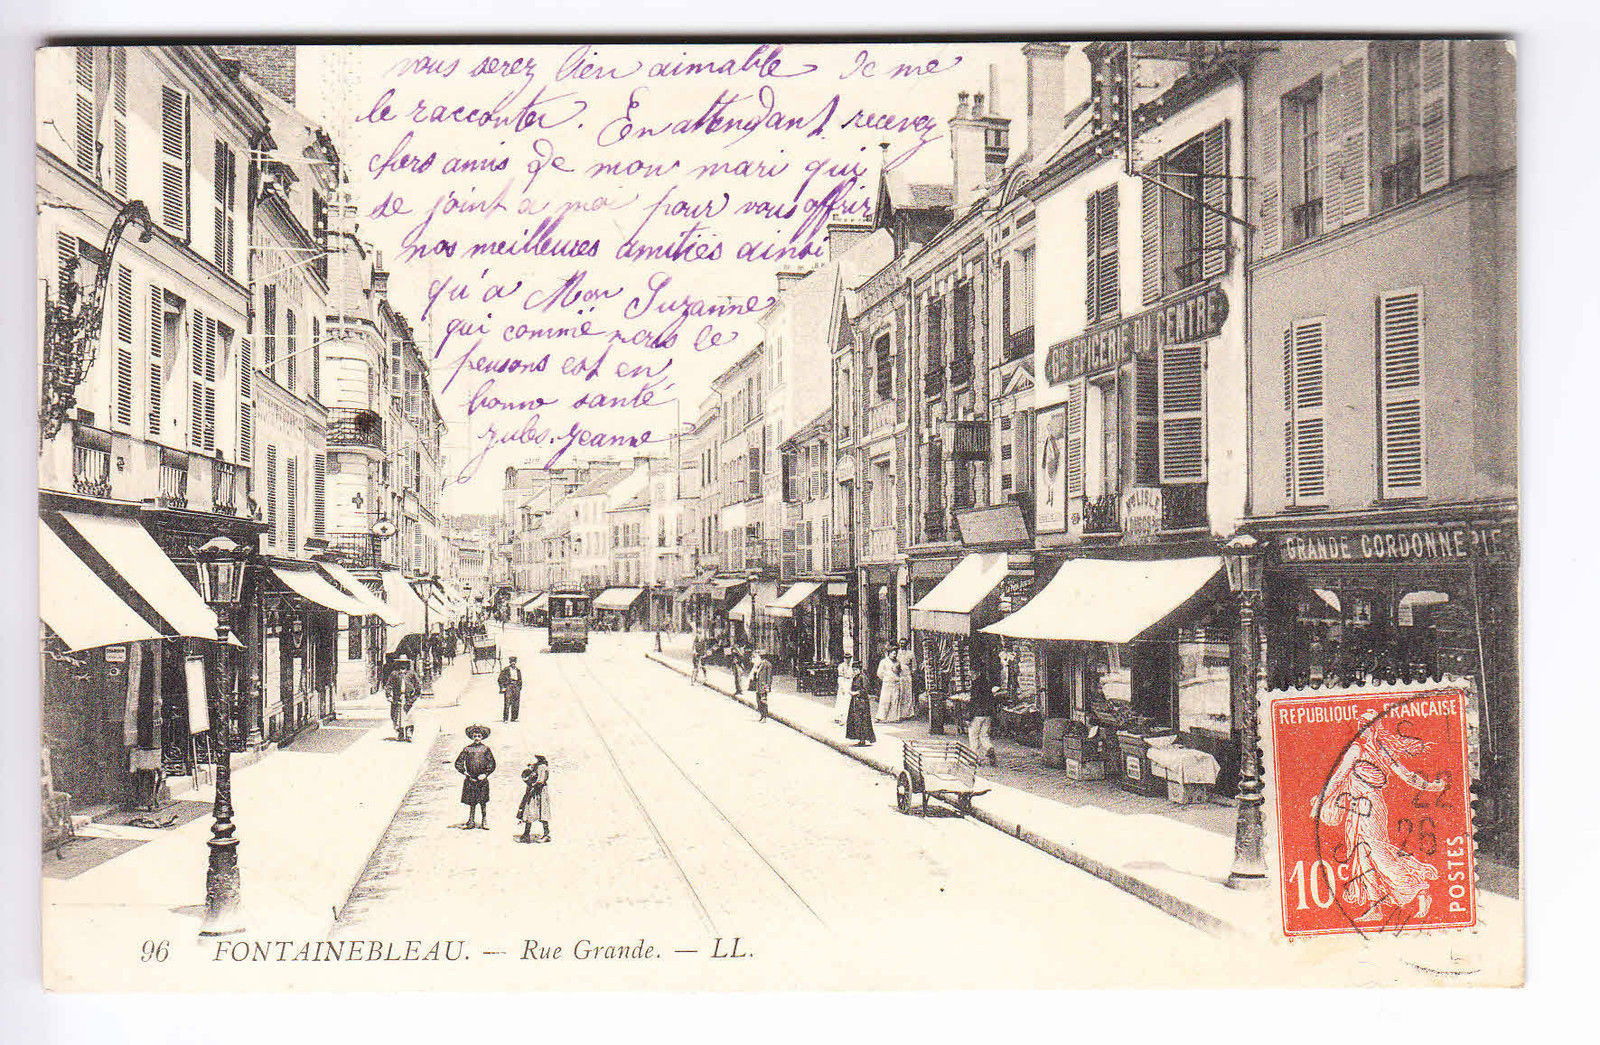 vous serez bien aimable de me
le raconter. En attendant recevez
chers amis de mon mari qui
se joint a moi pour vous offrir
nos meilleures amitiés ainsi
qu'a Mon Suzanne
qui comme nous le
pensons est en
bonne santé
Jules. Jeanne
Gde EPICERIE DU CENTRE
GRANDE CORDONNERIE
REPUBLIQUE FRANÇAISE
22
26
10c
POSTES
96 FONTAINEBLEAU. — Rue Grande. — LL.